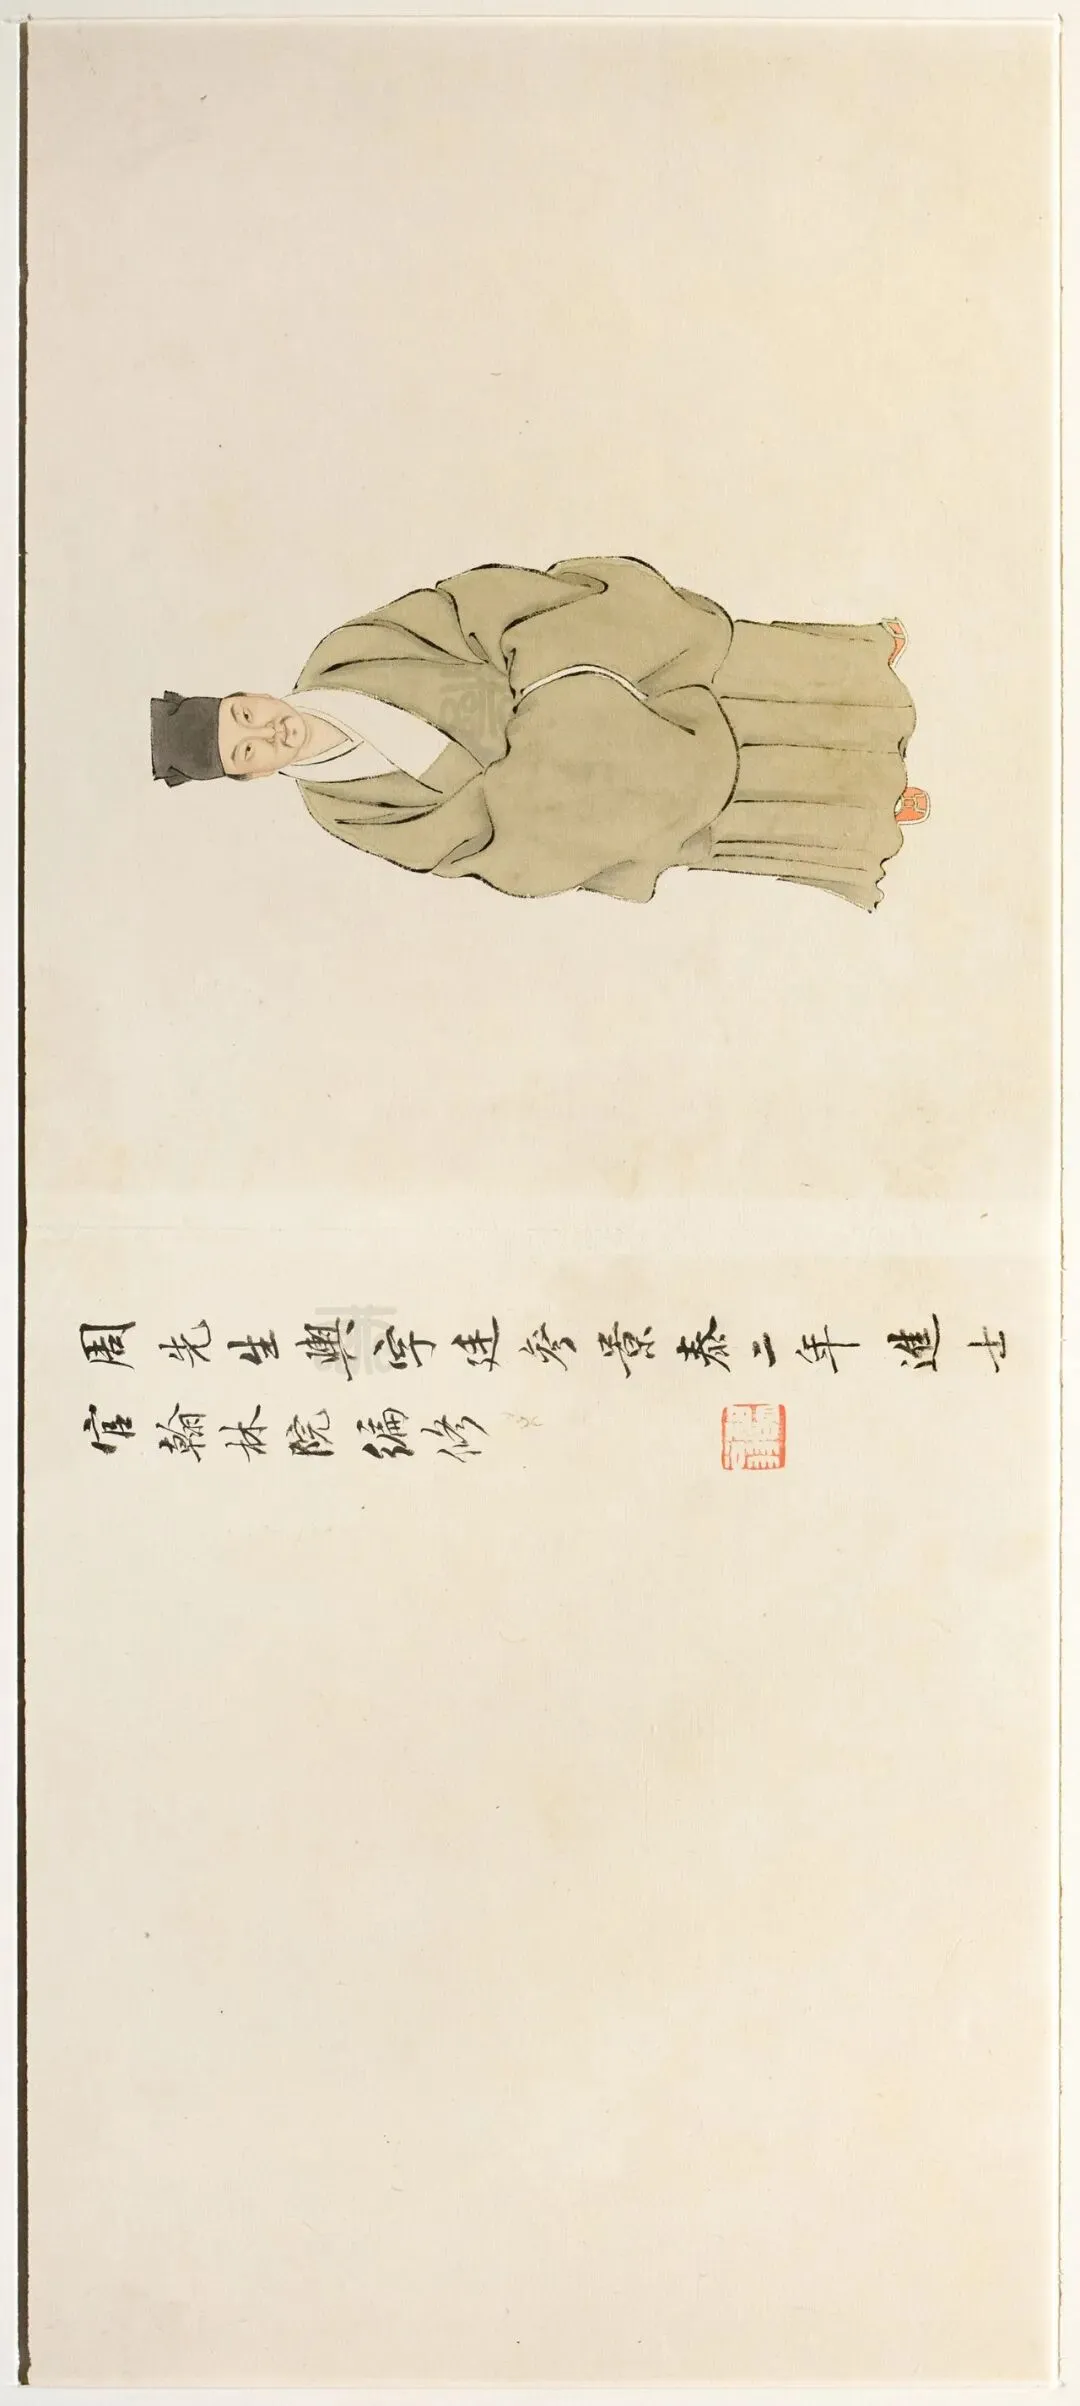 周先生輿字廷參景泰二年進士
官翰林院編修